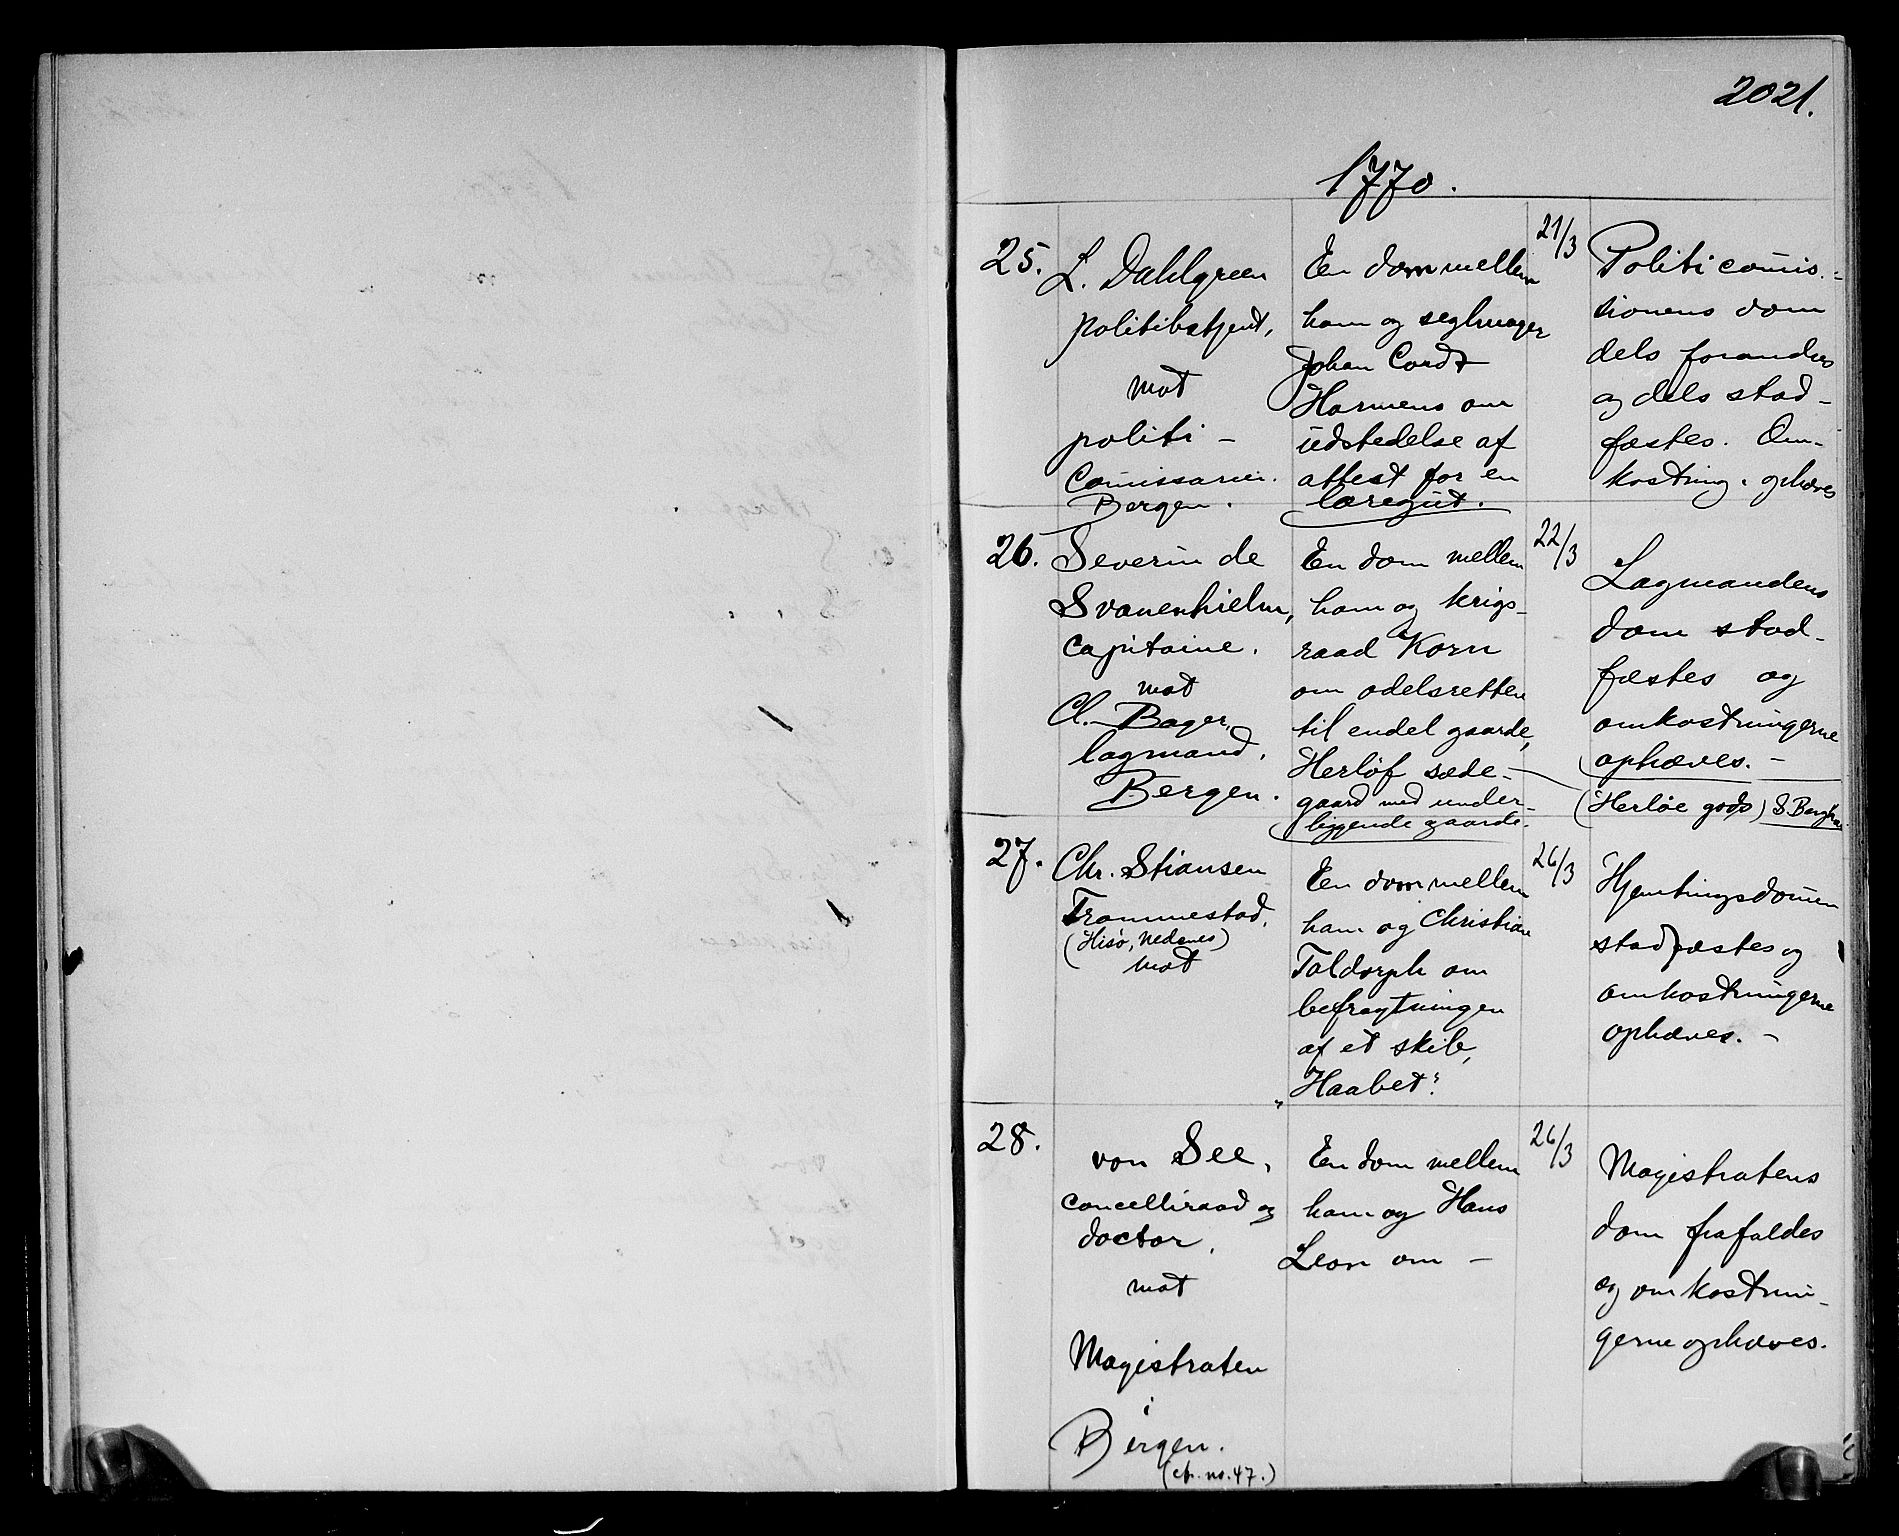 2021.
1770.
25.
L. Dahlgreen
politibetjent,
mot
politi-
Comissarier.
Bergen.
En dom mellem
ham og seglmager
Johan Cordt
Harmens om
udstedelse af
attest for en
læregut.
21/3
Politicomis-
sionens dom
dels forandres
og dels stad-
fæstes. Om-
kostning. ophæves
26.
Severin de
Svanenhielm,
capitaine.
mot
Cl. Bager,
lagmand,
Bergen.
En dom mellem
ham og krigs-
raad Korn
om odelsretten
til endel gaarde,
Herløf sæde-
gaard med under-
liggende gaarde.
22/3
Lagmandens
dom stad-
fæstes og
omkostningerne
ophæves. -
(Herløe gods)
27.
Chr. Stiansen
Trommestad.
(Hisö, Nedenes)
mot
En dom mellem
ham og Christian
Toldorph om
befragtningen
af et skib,
"Haabet".
26/3
Hjemtingsdommen
stadfæstes og
omkostningerne
ophæves. -
28.
von See,
cancelliraad og
doctor.
mot
Magistraten
i
Bergen.
(cfr. no. 47.)
En dom mellem
ham og Hans
Leon om -
26/3
Magistratens
dom frafaldes
og omkostnin-
gerne ophæves.